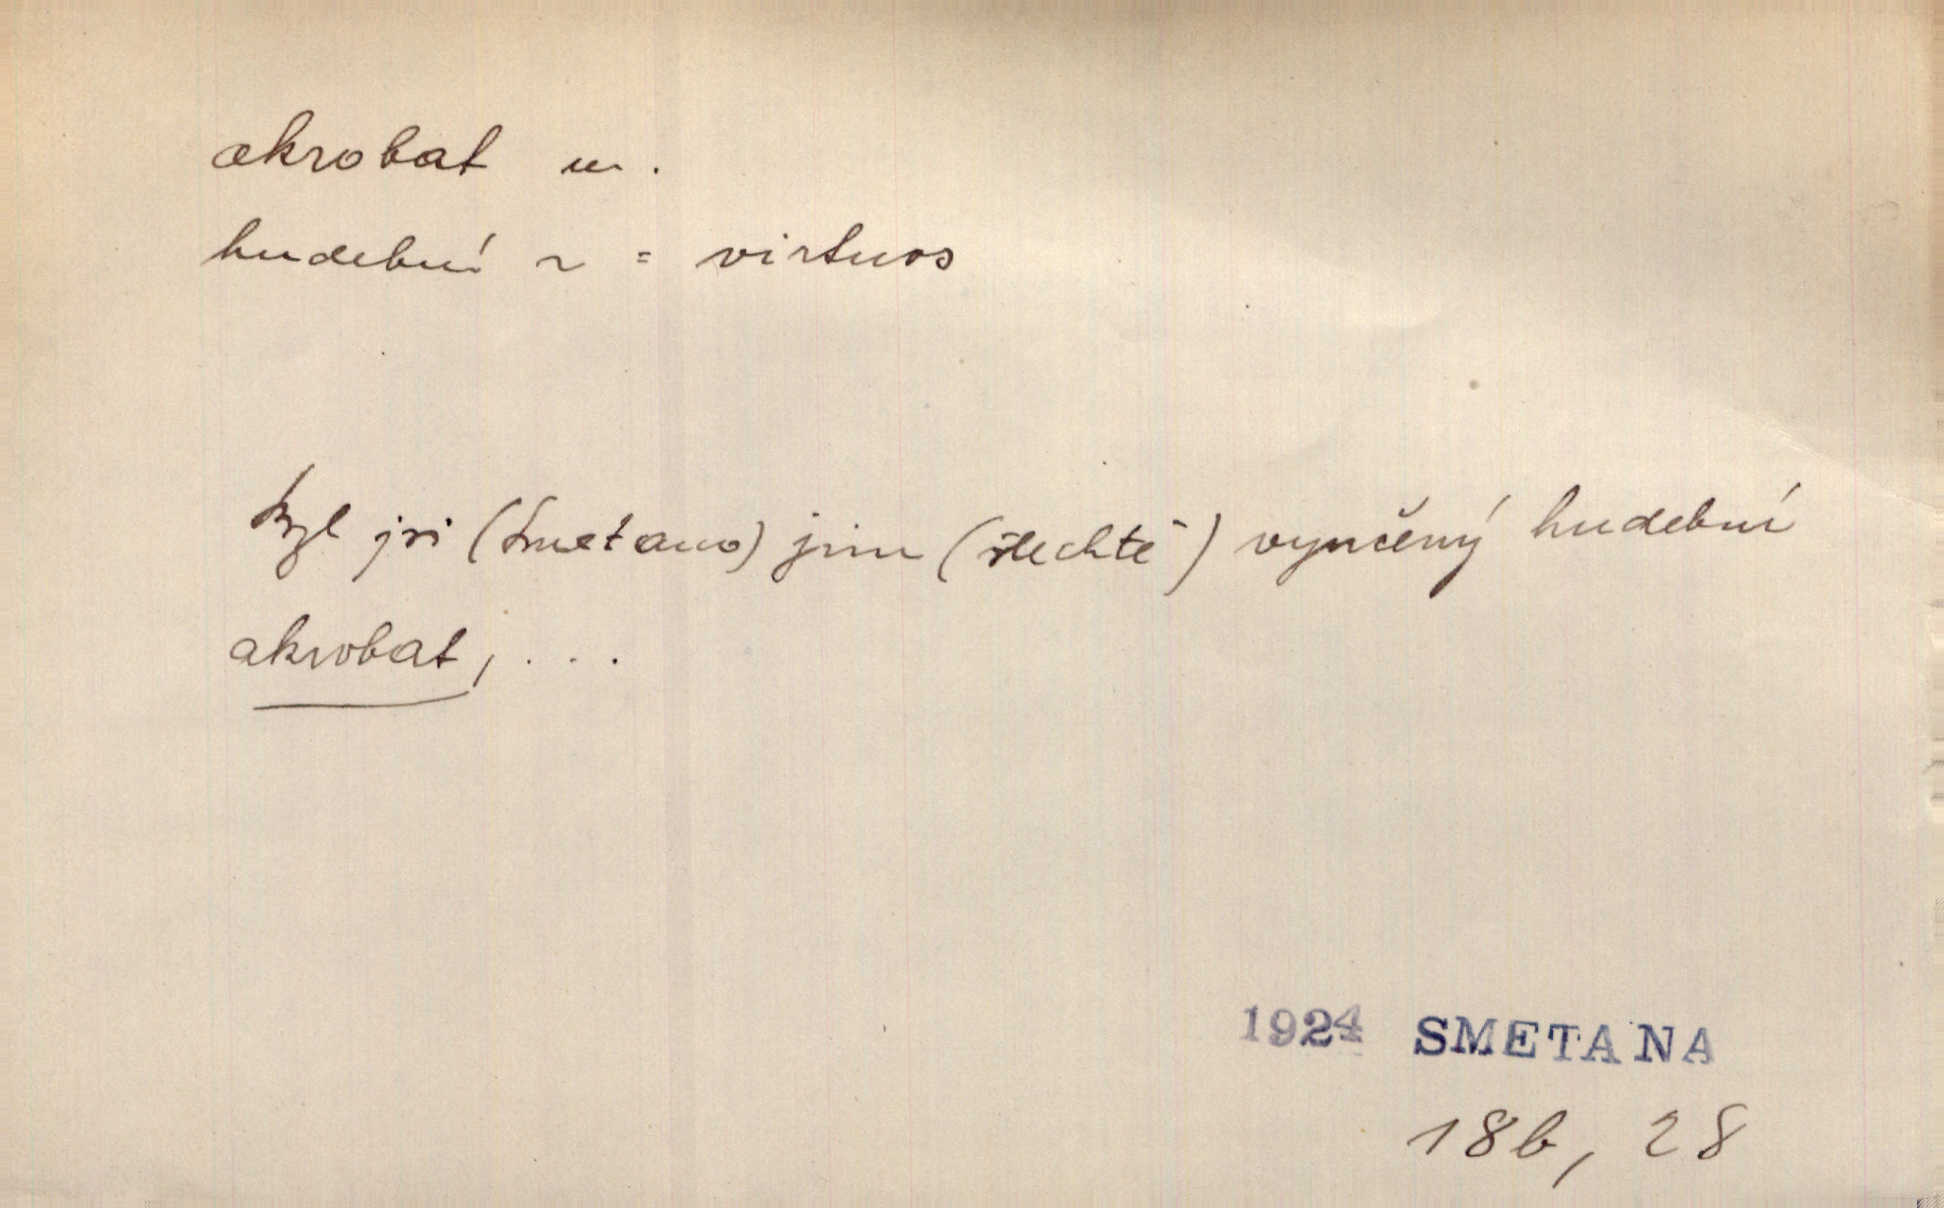 akrobat m.
hudební ~ = virtuos
byl jsi (Smetano) jim (šlechtě) vyučený hudební
akrobat, . . .
1924 SMETANA
18b, 28